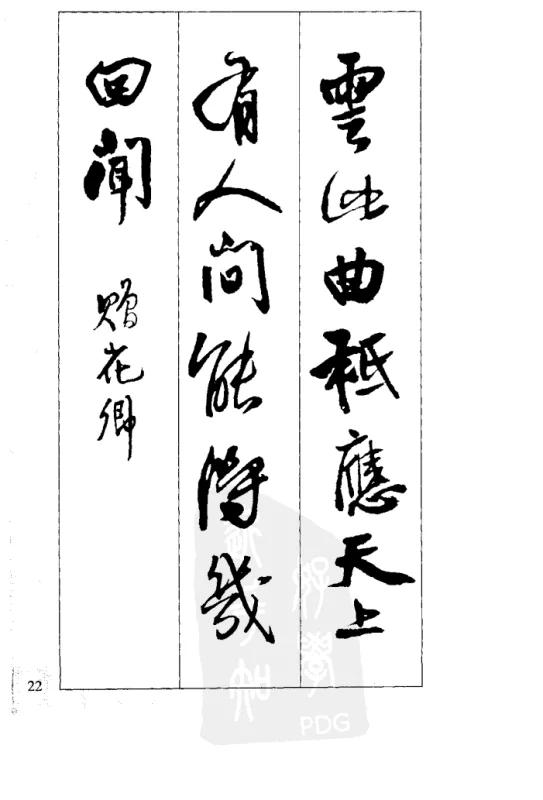 雲此曲秪應天上
有人間能得幾
回聞 贈花卿
22
PDG